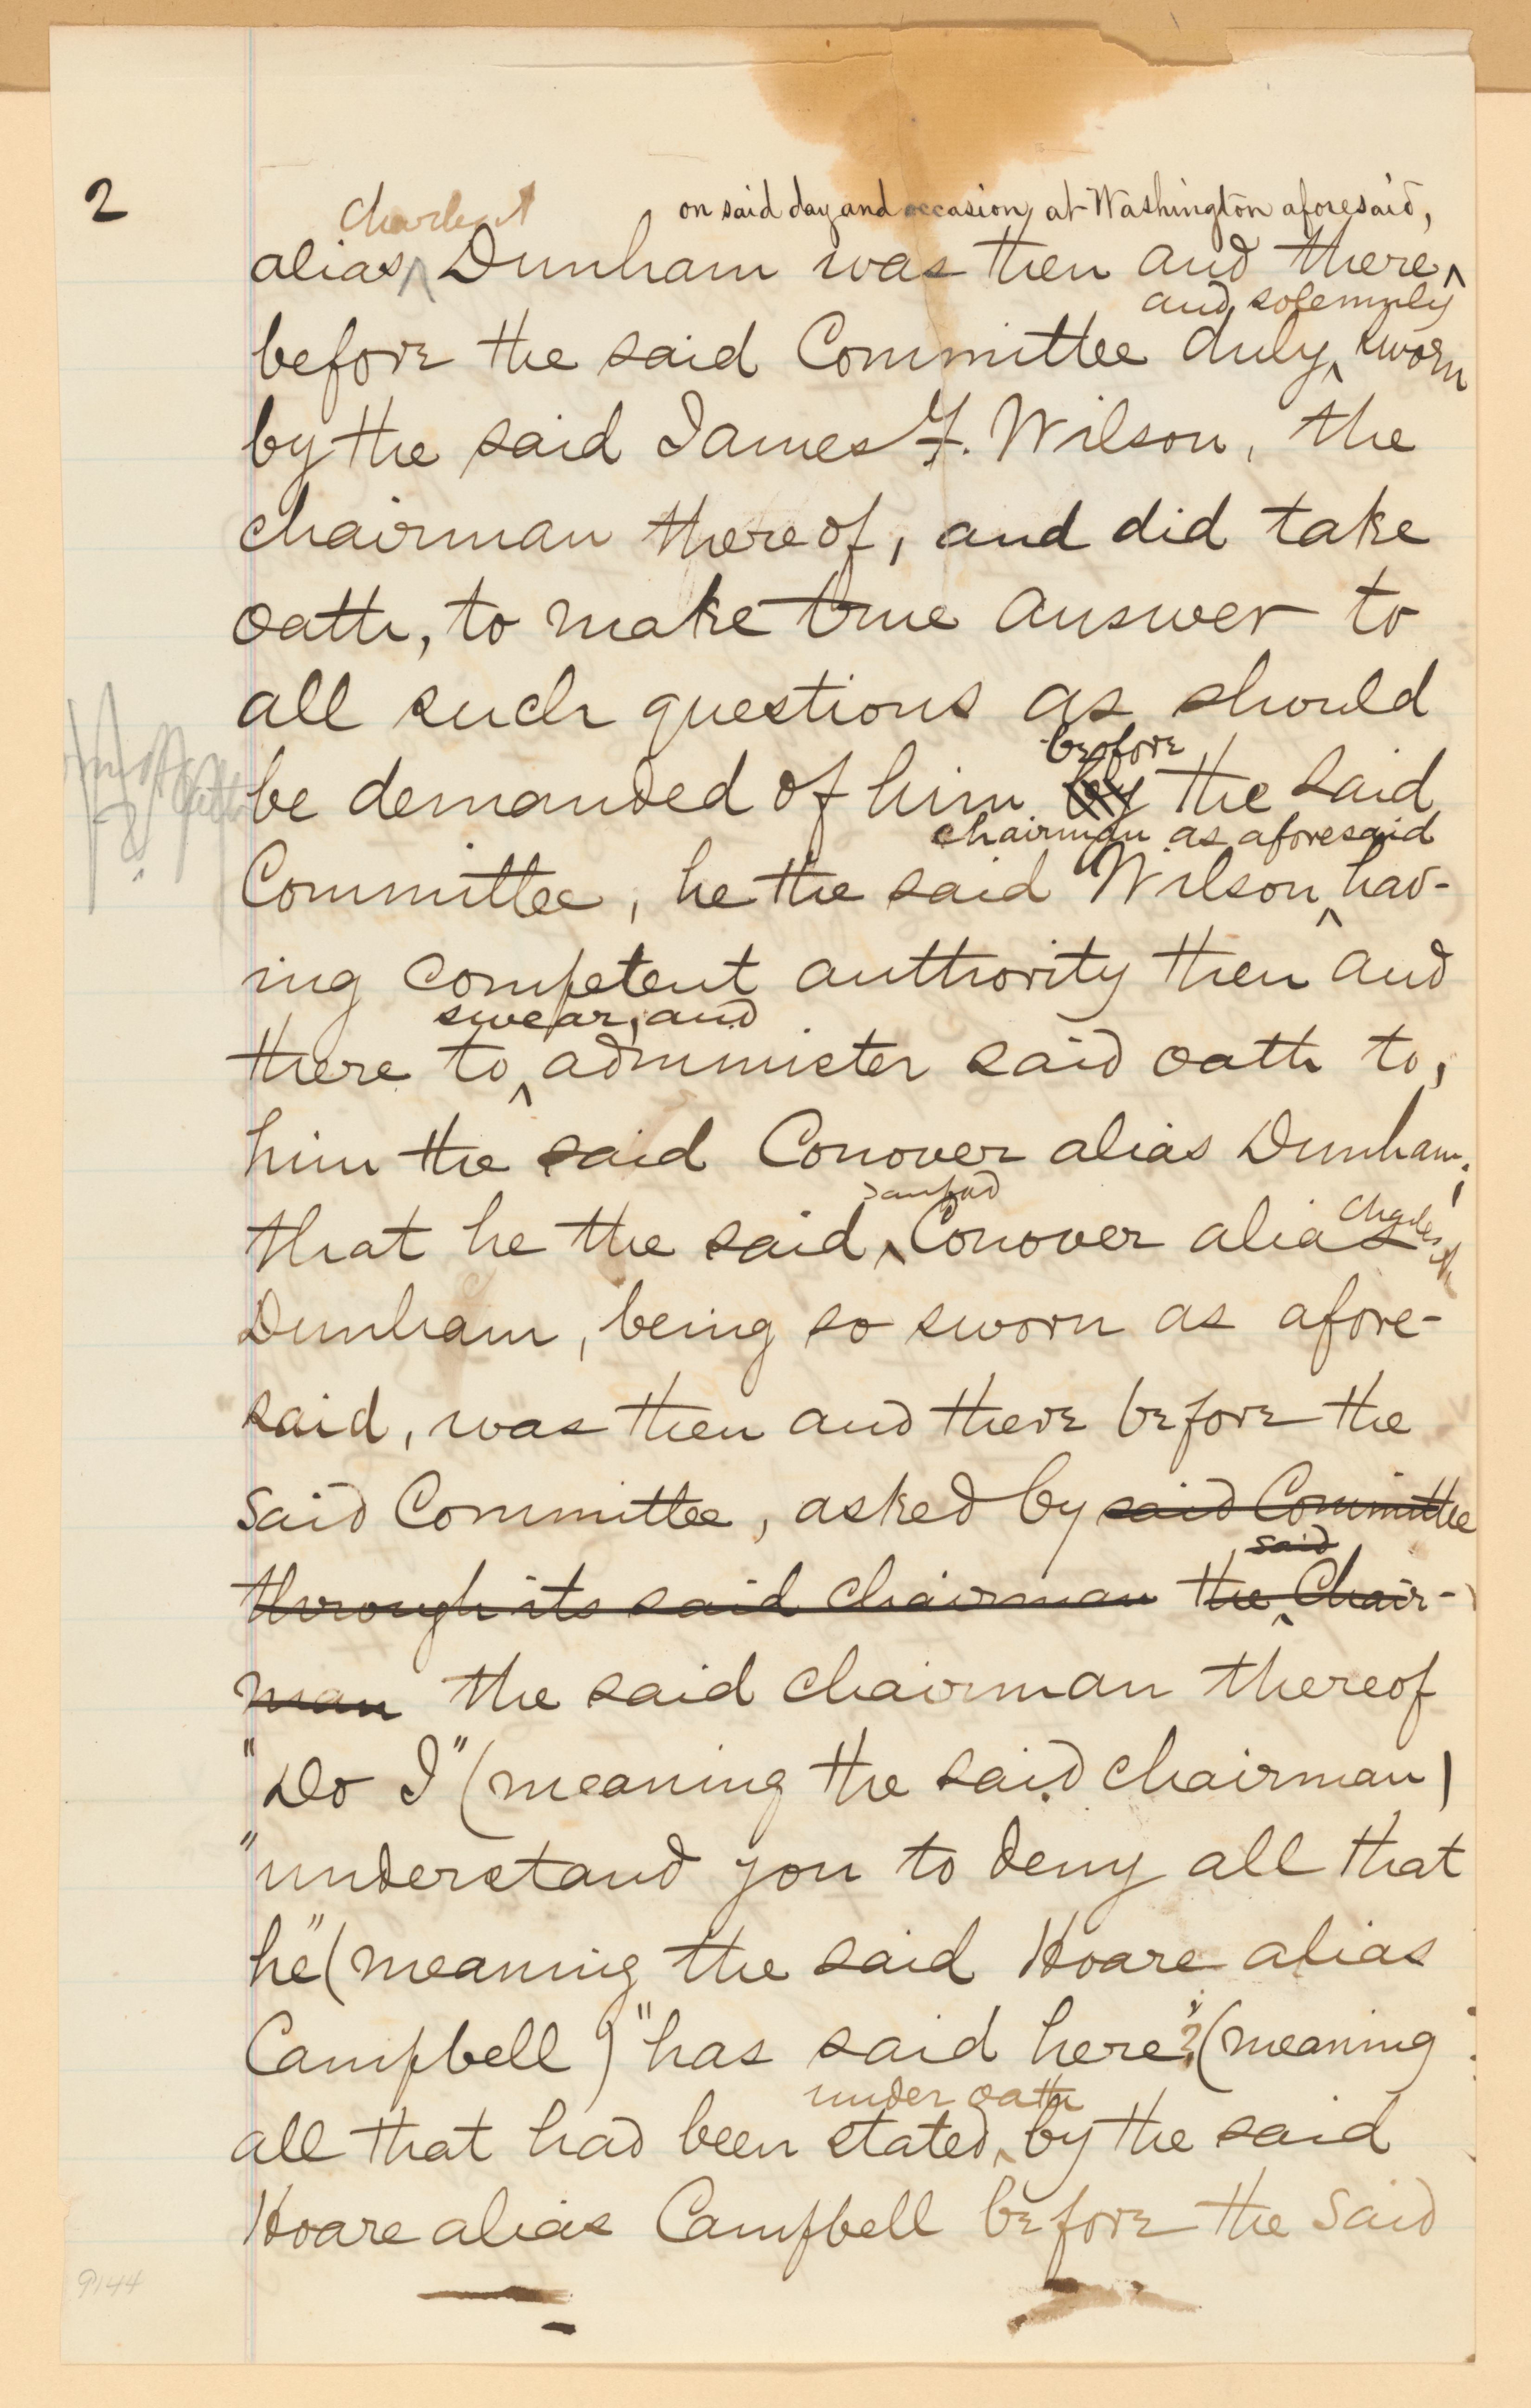 2
Charles A on said day and occasion, at Washington aforesaid,
alias ^ Dunham was then and there ^
and solemnly
before the said Committee duly ^ sworn
by the said James F. Wilson, the
chairman thereof, and did take
oath, to make true answer to
all such questions as should
before
be demanded of him by the said
chairman as aforesaid
Committee, he the said Wilson ^ hav-
ing competent authority then and
swear, and
there to ^ administer said oath to,
him the said Conover alias Dunham;
Sanford Charles A
that he the said ^ Conover alias
Dunham, being so sworn as afore-
said, was then and there before the
said Committee, asked by said Committee
said
through its said chairman the ^ Chair-
man the said chairman thereof
"Do I" (meaning the said chairman)
"understand you to deny all that
he" (meaning the said Hoare alias
Campbell) "has said here?" (meaning
under oath
all that had been stated ^ by the said
Hoare alias Campbell before the said
9144